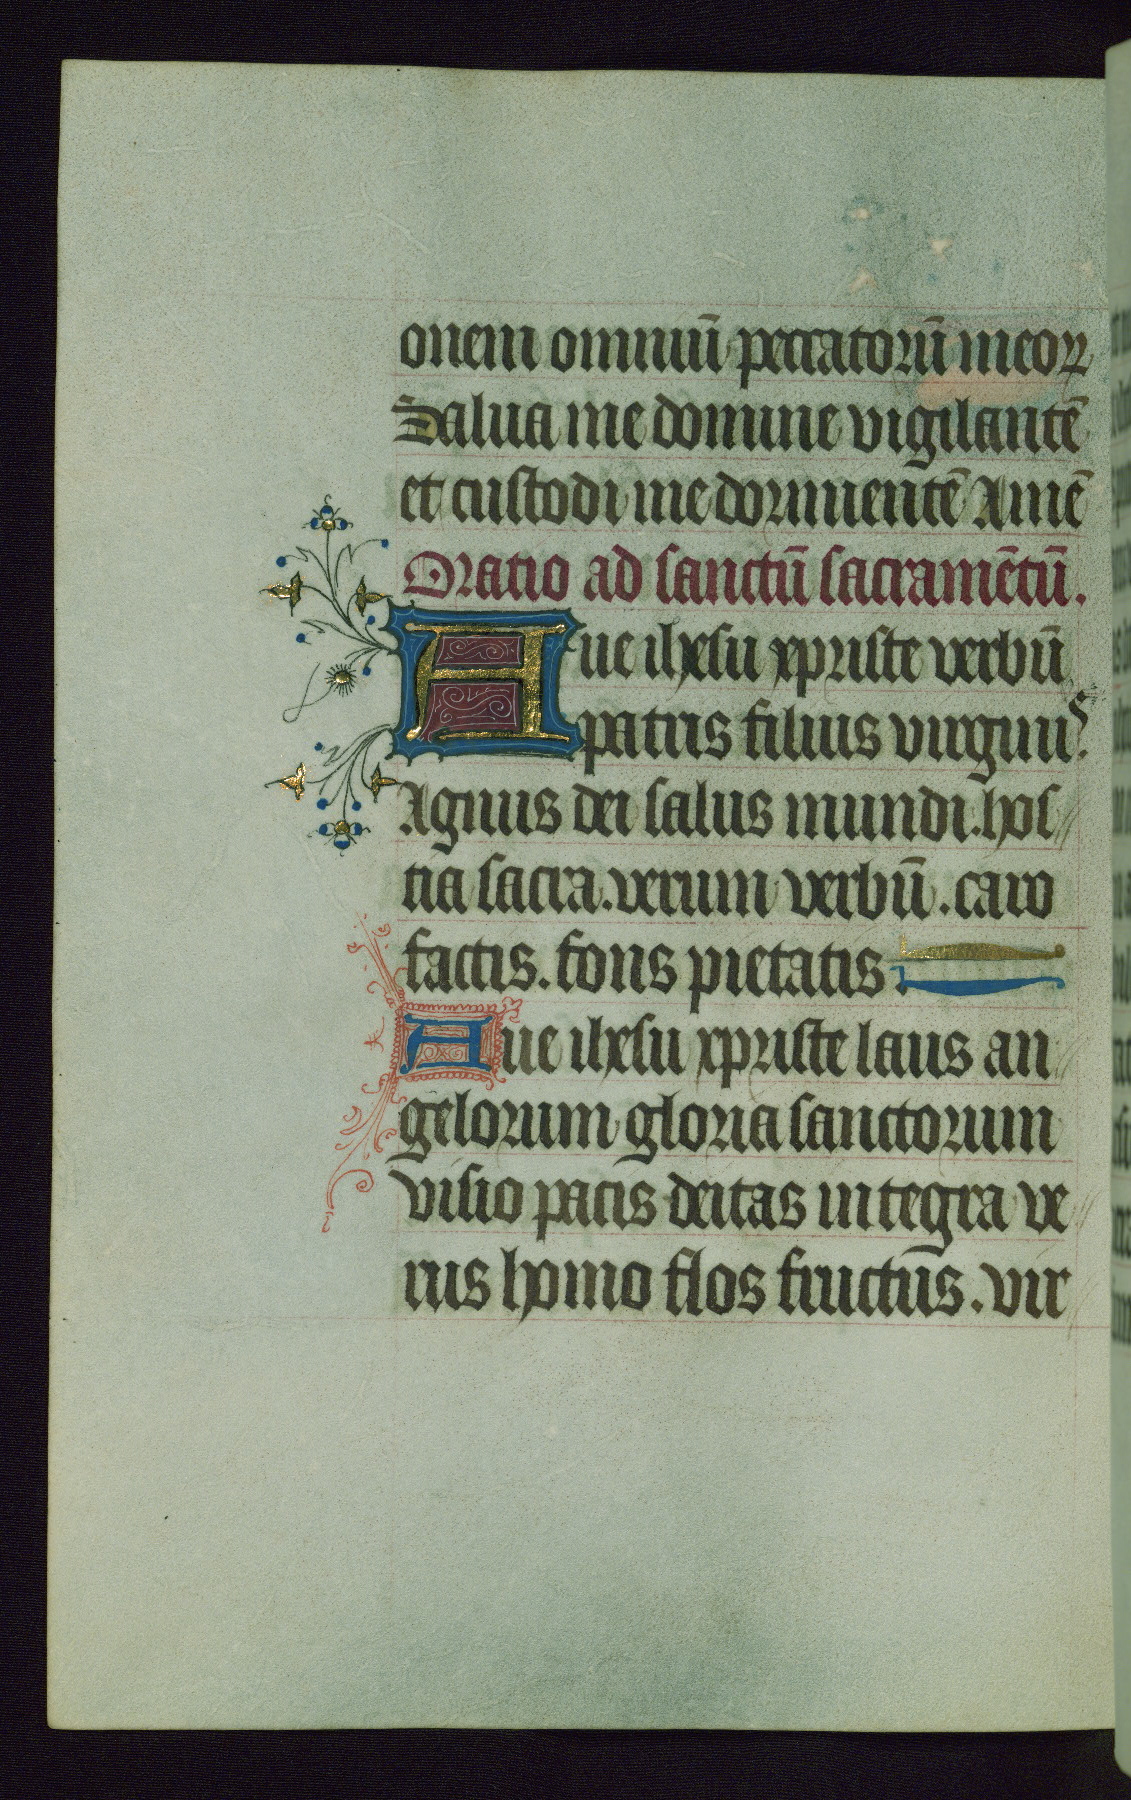 onem omniū peccatorū meoꝝ
Salua me domine vigilantē
et custodi me dormientē Amē
Oratio ad sanctū sacramētū.
Aue ihesu xpriste verbū
patris filius virginis.
Agnus dei salus mundi. hos
tia sacra. verum verbū. caro
factis. fons pietatis.
Aue ihesu xpriste laus an
gelorum gloria sanctorum
visio pacis deitas integra ve
rus homo flos fructus. vir